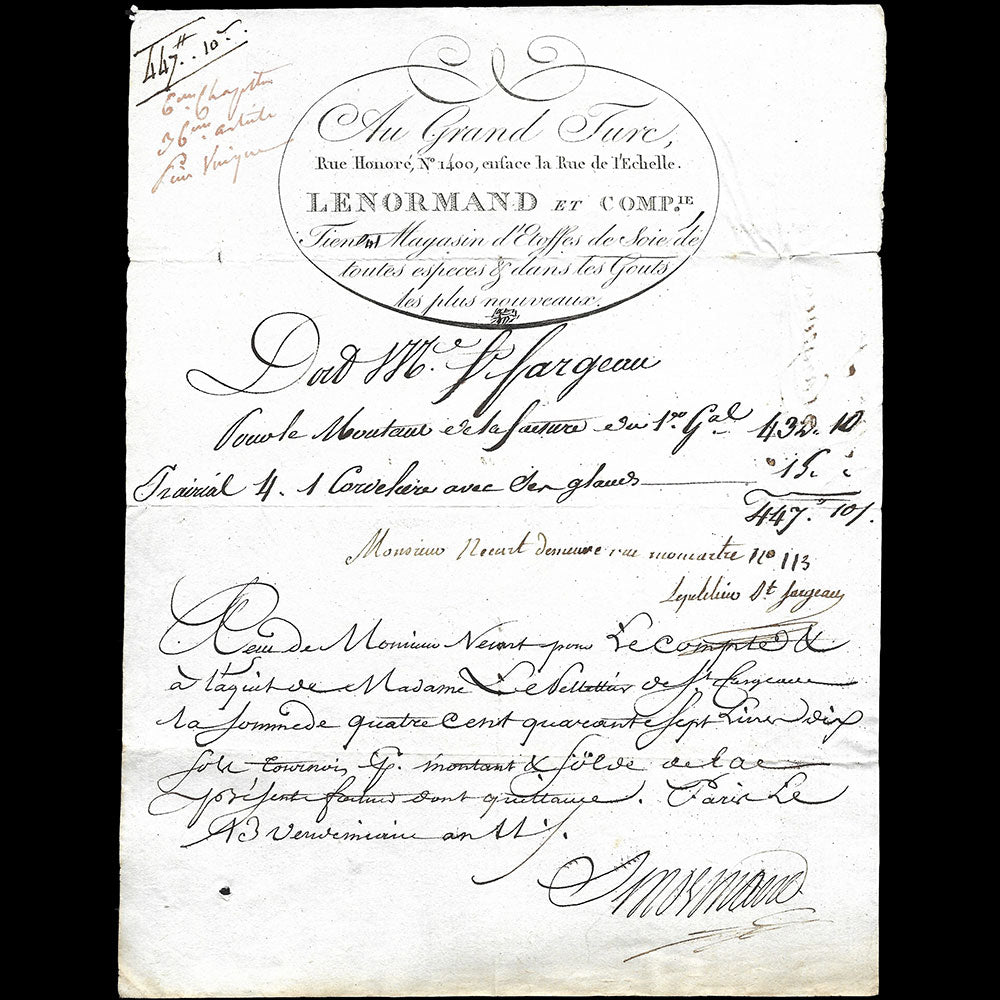 447.tt 10s.
6eme Chapitre
36eme article
Piece Unique
Au Grand Turc,
Rue Honoré, No 1400, enface la Rue de l'Echelle.
LENORMAND ET COMP.IE
Tiennt Magasin d'Etoffes de Soie de
toutes especes & dans les Gouts
les plus nouveaux.
Doit Me. St fargeau
Pour le Montant de la facture du 1er Gal 432. 10
Prairial 4. 1 Cordeliere avec Ses glands 15.
447. 10s.
Monsieur demeure rue momartre no 113
St fargeau
Recu de Monsieur pour Le Compte &
à l'aquit de Madame Le Pelletier de St fargeau
la somme de quatre cent quarante sept Livres dix
sols tournois P. montant & solde de la
présente facture dont quittance. Paris Le
13 vendemiaire an
Lenormand